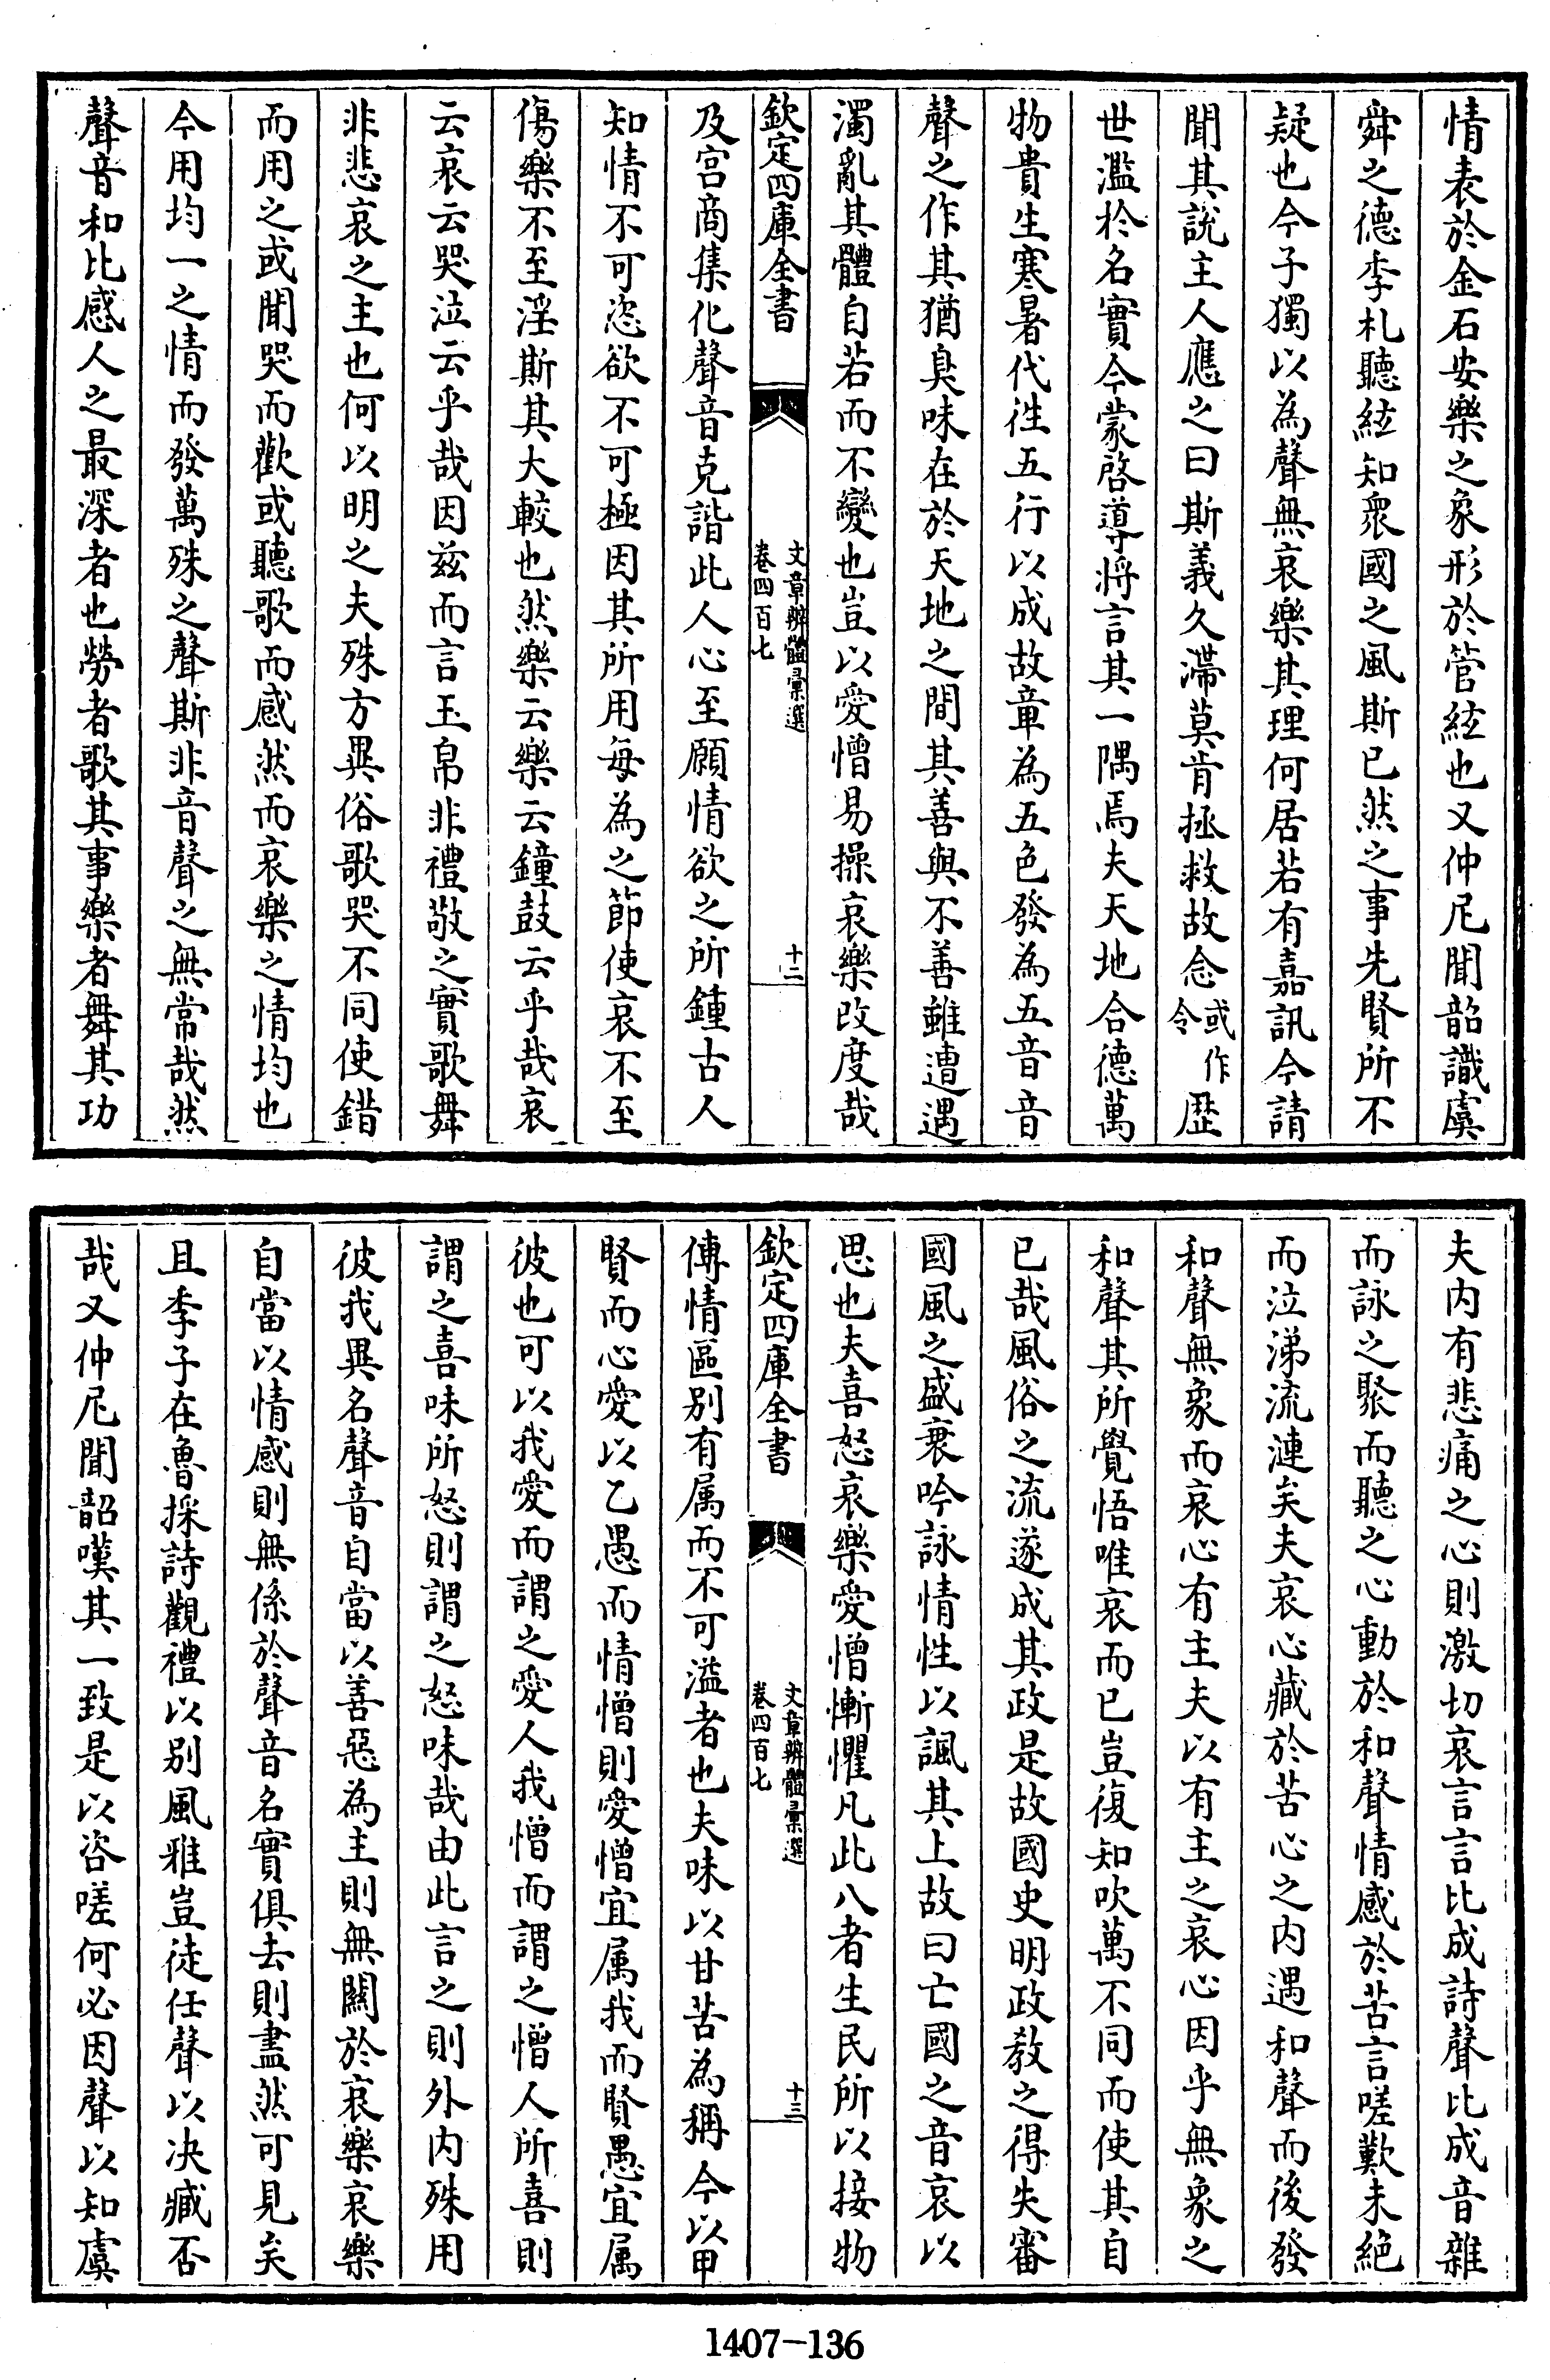 情表於金石安樂之象形於管絃也又仲尼聞韶識虞
舜之德季札聽絃知衆國之風斯已然之事先賢所不
疑也今子獨以為聲無哀樂其理何居若有嘉訊今請
聞其說主人應之曰斯義久滯莫肯拯救故念或作令歴
世濫於名實今蒙啓導將言其一隅焉夫天地合德萬
物貴生寒暑代徃五行以成故章為五色發為五音音
聲之作其猶臭味在於天地之間其善與不善雖遭遇
濁亂其體自若而不變也豈以愛憎易操哀樂改度哉
欽定四庫全書
文章辨體彙選
卷四百七
十二
及宮商集化聲音克諧此人心至願情欲之所鍾古人
知情不可恣欲不可極因其所用每為之節使哀不至
傷樂不至淫斯其大較也然樂云樂云鐘鼓云乎哉哀
云哀云哭泣云乎哉因兹而言玉帛非禮敬之實歌舞
非悲哀之主也何以明之夫殊方異俗歌哭不同使錯
而用之或聞哭而歡或聽歌而感然而哀樂之情均也
今用均一之情而發萬殊之聲斯非音聲之無常哉然
聲音和比感人之最深者也勞者歌其事樂者舞其功
夫内有悲痛之心則激切哀言言比成詩聲比成音雜
而詠之聚而聽之心動於和聲情感於苦言嗟歎未絶
而泣涕流漣矣夫哀心藏於苦心之内遇和聲而後發
和聲無象而哀心有主夫以有主之哀心因乎無象之
和聲其所覺悟唯哀而已豈復知吹萬不同而使其自
已哉風俗之流遂成其政是故國史明政教之得失審
國風之盛衰吟詠情性以諷其上故曰亡國之音哀以
思也夫喜怒哀樂愛憎慚懼凡此八者生民所以接物
欽定四庫全書
文章辨體彙選
卷四百七
十三
傳情區别有属而不可溢者也夫味以甘苦為稱今以甲
賢而心愛以乙愚而情憎則愛憎宜属我而賢愚宜属
彼也可以我愛而謂之愛人我憎而謂之憎人所喜則
謂之喜味所怒則謂之怒味哉由此言之則外内殊用
彼我異名聲音自當以善惡為主則無關於哀樂哀樂
自當以情感則無係於聲音名實俱去則盡然可見矣
且季子在魯採詩觀禮以别風雅豈徒任聲以决臧否
哉又仲尼聞韶嘆其一致是以咨嗟何必因聲以知虞
1407-136